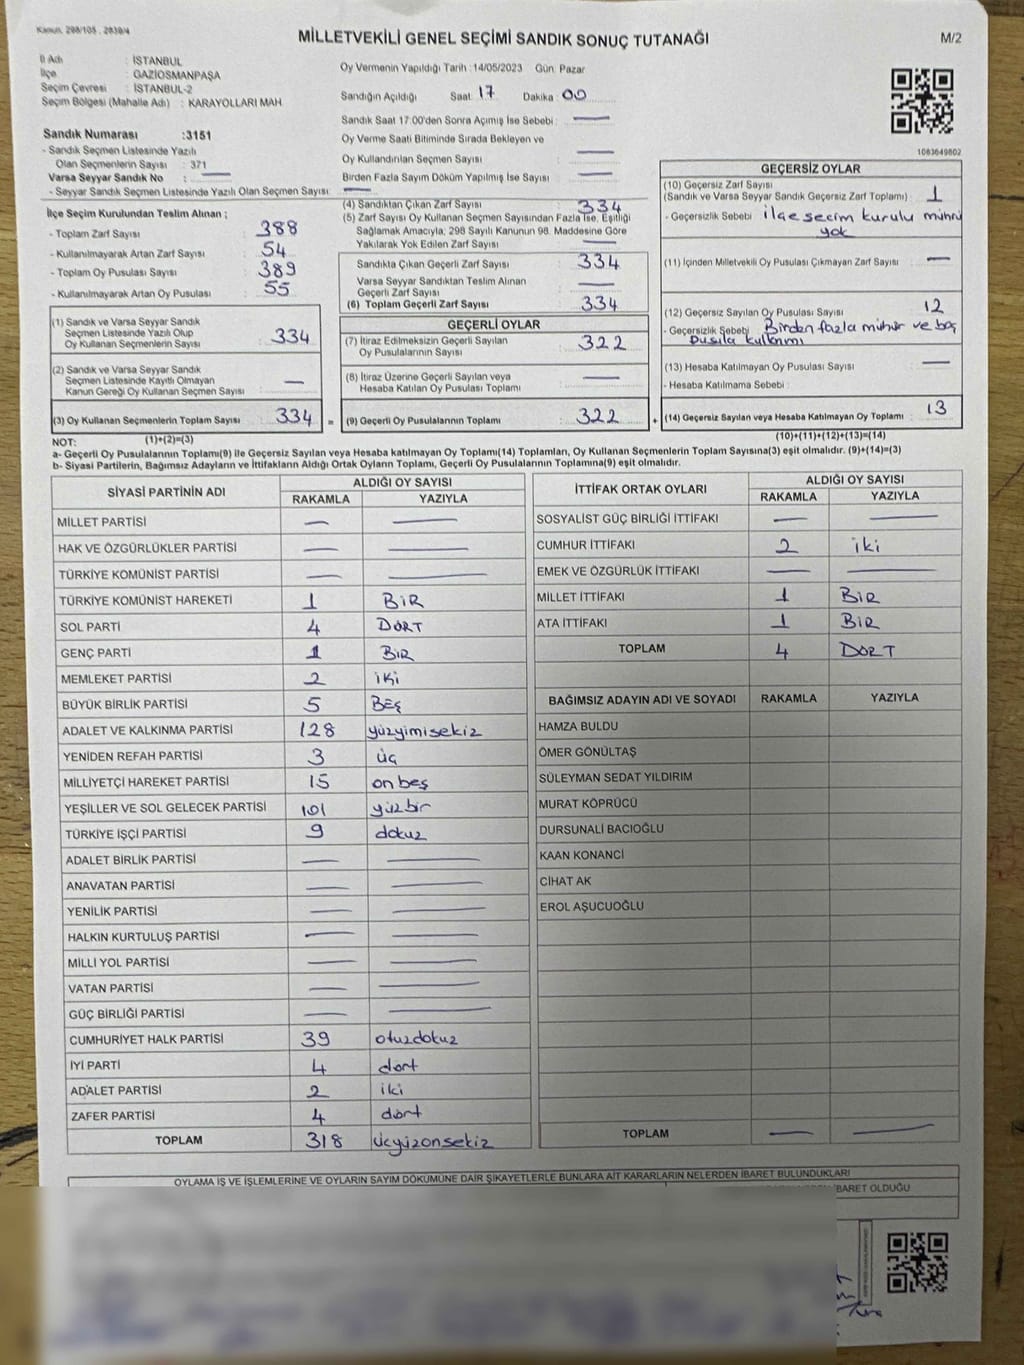 Kanun. 298/105 , 2839/4
MİLLETVEKİLİ GENEL SEÇİMİ SANDIK SONUÇ TUTANAĞI
M/2
İl Adı : İSTANBUL
İlçe : GAZİOSMANPAŞA
Seçim Çevresi : İSTANBUL-2
Seçim Bölgesi (Mahalle Adı) : KARAYOLLARI MAH
Sandık Numarası :3151
- Sandık Seçmen Listesinde Yazılı
Olan Seçmenlerin Sayısı : 371
Varsa Seyyar Sandık No : —
- Seyyar Sandık Seçmen Listesinde Yazılı Olan Seçmen Sayısı: —
Oy Vermenin Yapıldığı Tarih :14/05/2023 Gün: Pazar
Sandığın Açıldığı Saat: 17 Dakika: 00
Sandık Saat 17:00'den Sonra Açımış İse Sebebi : —
Oy Verme Saati Bitiminde Sırada Bekleyen ve
Oy Kullandırılan Seçmen Sayısı : —
Birden Fazla Sayım Döküm Yapılmış İse Sayısı : —
1083649802
İlçe Seçim Kurulundan Teslim Alınan ;
- Toplam Zarf Sayısı : 388
- Kullanılmayarak Artan Zarf Sayısı : 54
- Toplam Oy Pusulası Sayısı : 389
- Kullanılmayarak Artan Oy Pusulası : 55
(1) Sandık ve Varsa Seyyar Sandık
Seçmen Listesinde Yazılı Olup
Oy Kullanan Seçmenlerin Sayısı : 334
(2) Sandık ve Varsa Seyyar Sandık
Seçmen Listesinde Kayıtlı Olmayan
Kanun Gereği Oy Kullanan Seçmen Sayısı : —
(3) Oy Kullanan Seçmenlerin Toplam Sayısı : 334 =
(4) Sandıktan Çıkan Zarf Sayısı : 334
(5) Zarf Sayısı Oy Kullanan Seçmen Sayısından Fazla İse, Eşitliği
Sağlamak Amacıyla; 298 Sayılı Kanunun 98. Maddesine Göre
Yakılarak Yok Edilen Zarf Sayısı : —
Sandıkta Çıkan Geçerli Zarf Sayısı : 334
Varsa Seyyar Sandıktan Teslim Alınan
Geçerli Zarf Sayısı : —
(6) Toplam Geçerli Zarf Sayısı : 334
GEÇERLİ OYLAR
(7) İtiraz Edilmeksizin Geçerli Sayılan
Oy Pusulalarının Sayısı : 322
(8) İtiraz Üzerine Geçerli Sayılan veya
Hesaba Katılan Oy Pusulası Toplamı : —
(9) Geçerli Oy Pusulalarının Toplamı : 322 +
GEÇERSİZ OYLAR
(10) Geçersiz Zarf Sayısı
(Sandık ve Varsa Seyyar Sandık Geçersiz Zarf Toplamı) : 1
- Geçersizlik Sebebi : ilçe seçim kurulu mührü
yok
(11) İçinden Milletvekili Oy Pusulası Çıkmayan Zarf Sayısı : —
(12) Geçersiz Sayılan Oy Pusulası Sayısı : 12
- Geçersizlik Sebebi : Birden fazla mühür ve boş
Pusula kullanımı
(13) Hesaba Katılmayan Oy Pusulası Sayısı : —
- Hesaba Katılmama Sebebi :
(14) Geçersiz Sayılan veya Hesaba Katılmayan Oy Toplamı : 13
NOT: (1)+(2)=(3) (10)+(11)+(12)+(13)=(14)
a- Geçerli Oy Pusulalarının Toplamı(9) ile Geçersiz Sayılan veya Hesaba katılmayan Oy Toplamı(14) Toplamları, Oy Kullanan Seçmenlerin Toplam Sayısına(3) eşit olmalıdır. (9)+(14)=(3)
b- Siyasi Partilerin, Bağımsız Adayların ve İttifakların Aldığı Ortak Oyların Toplamı, Geçerli Oy Pusulalarının Toplamına(9) eşit olmalıdır.
SİYASİ PARTİNİN ADI ALDIĞI OY SAYISI
RAKAMLA YAZIYLA
MİLLET PARTİSİ — —
HAK VE ÖZGÜRLÜKLER PARTİSİ — —
TÜRKİYE KOMÜNİST PARTİSİ — —
TÜRKİYE KOMÜNİST HAREKETİ 1 BİR
SOL PARTİ 4 DÖRT
GENÇ PARTİ 1 BİR
MEMLEKET PARTİSİ 2 iki
BÜYÜK BİRLİK PARTİSİ 5 BEŞ
ADALET VE KALKINMA PARTİSİ 128 yüzyimisekiz
YENİDEN REFAH PARTİSİ 3 üç
MİLLİYETÇİ HAREKET PARTİSİ 15 onbeş
YEŞİLLER VE SOL GELECEK PARTİSİ 101 yüzbir
TÜRKİYE İŞÇİ PARTİSİ 9 dokuz
ADALET BİRLİK PARTİSİ — —
ANAVATAN PARTİSİ — —
YENİLİK PARTİSİ — —
HALKIN KURTULUŞ PARTİSİ — —
MİLLİ YOL PARTİSİ — —
VATAN PARTİSİ — —
GÜÇ BİRLİĞİ PARTİSİ — —
CUMHURİYET HALK PARTİSİ 39 otuzdokuz
İYİ PARTİ 4 dört
ADALET PARTİSİ 2 iki
ZAFER PARTİSİ 4 dört
TOPLAM 318 üçyüzonsekiz
İTTİFAK ORTAK OYLARI ALDIĞI OY SAYISI
RAKAMLA YAZIYLA
SOSYALİST GÜÇ BİRLİĞİ İTTİFAKI — —
CUMHUR İTTİFAKI 2 iki
EMEK VE ÖZGÜRLÜK İTTİFAKI — —
MİLLET İTTİFAKI 1 BİR
ATA İTTİFAKI 1 BİR
TOPLAM 4 DÖRT
BAĞIMSIZ ADAYIN ADI VE SOYADI RAKAMLA YAZIYLA
HAMZA BULDU
ÖMER GÖNÜLTAŞ
SÜLEYMAN SEDAT YILDIRIM
MURAT KÖPRÜCÜ
DURSUNALİ BACIOĞLU
KAAN KONANCİ
CİHAT AK
EROL AŞUCUOĞLU
TOPLAM — —
OYLAMA İŞ VE İŞLEMLERİNE VE OYLARIN SAYIM DÖKÜMÜNE DAİR ŞİKAYETLERLE BUNLARA AİT KARARLARIN NELERDEN İBARET BULUNDUKLARI
İBARET OLDUĞU